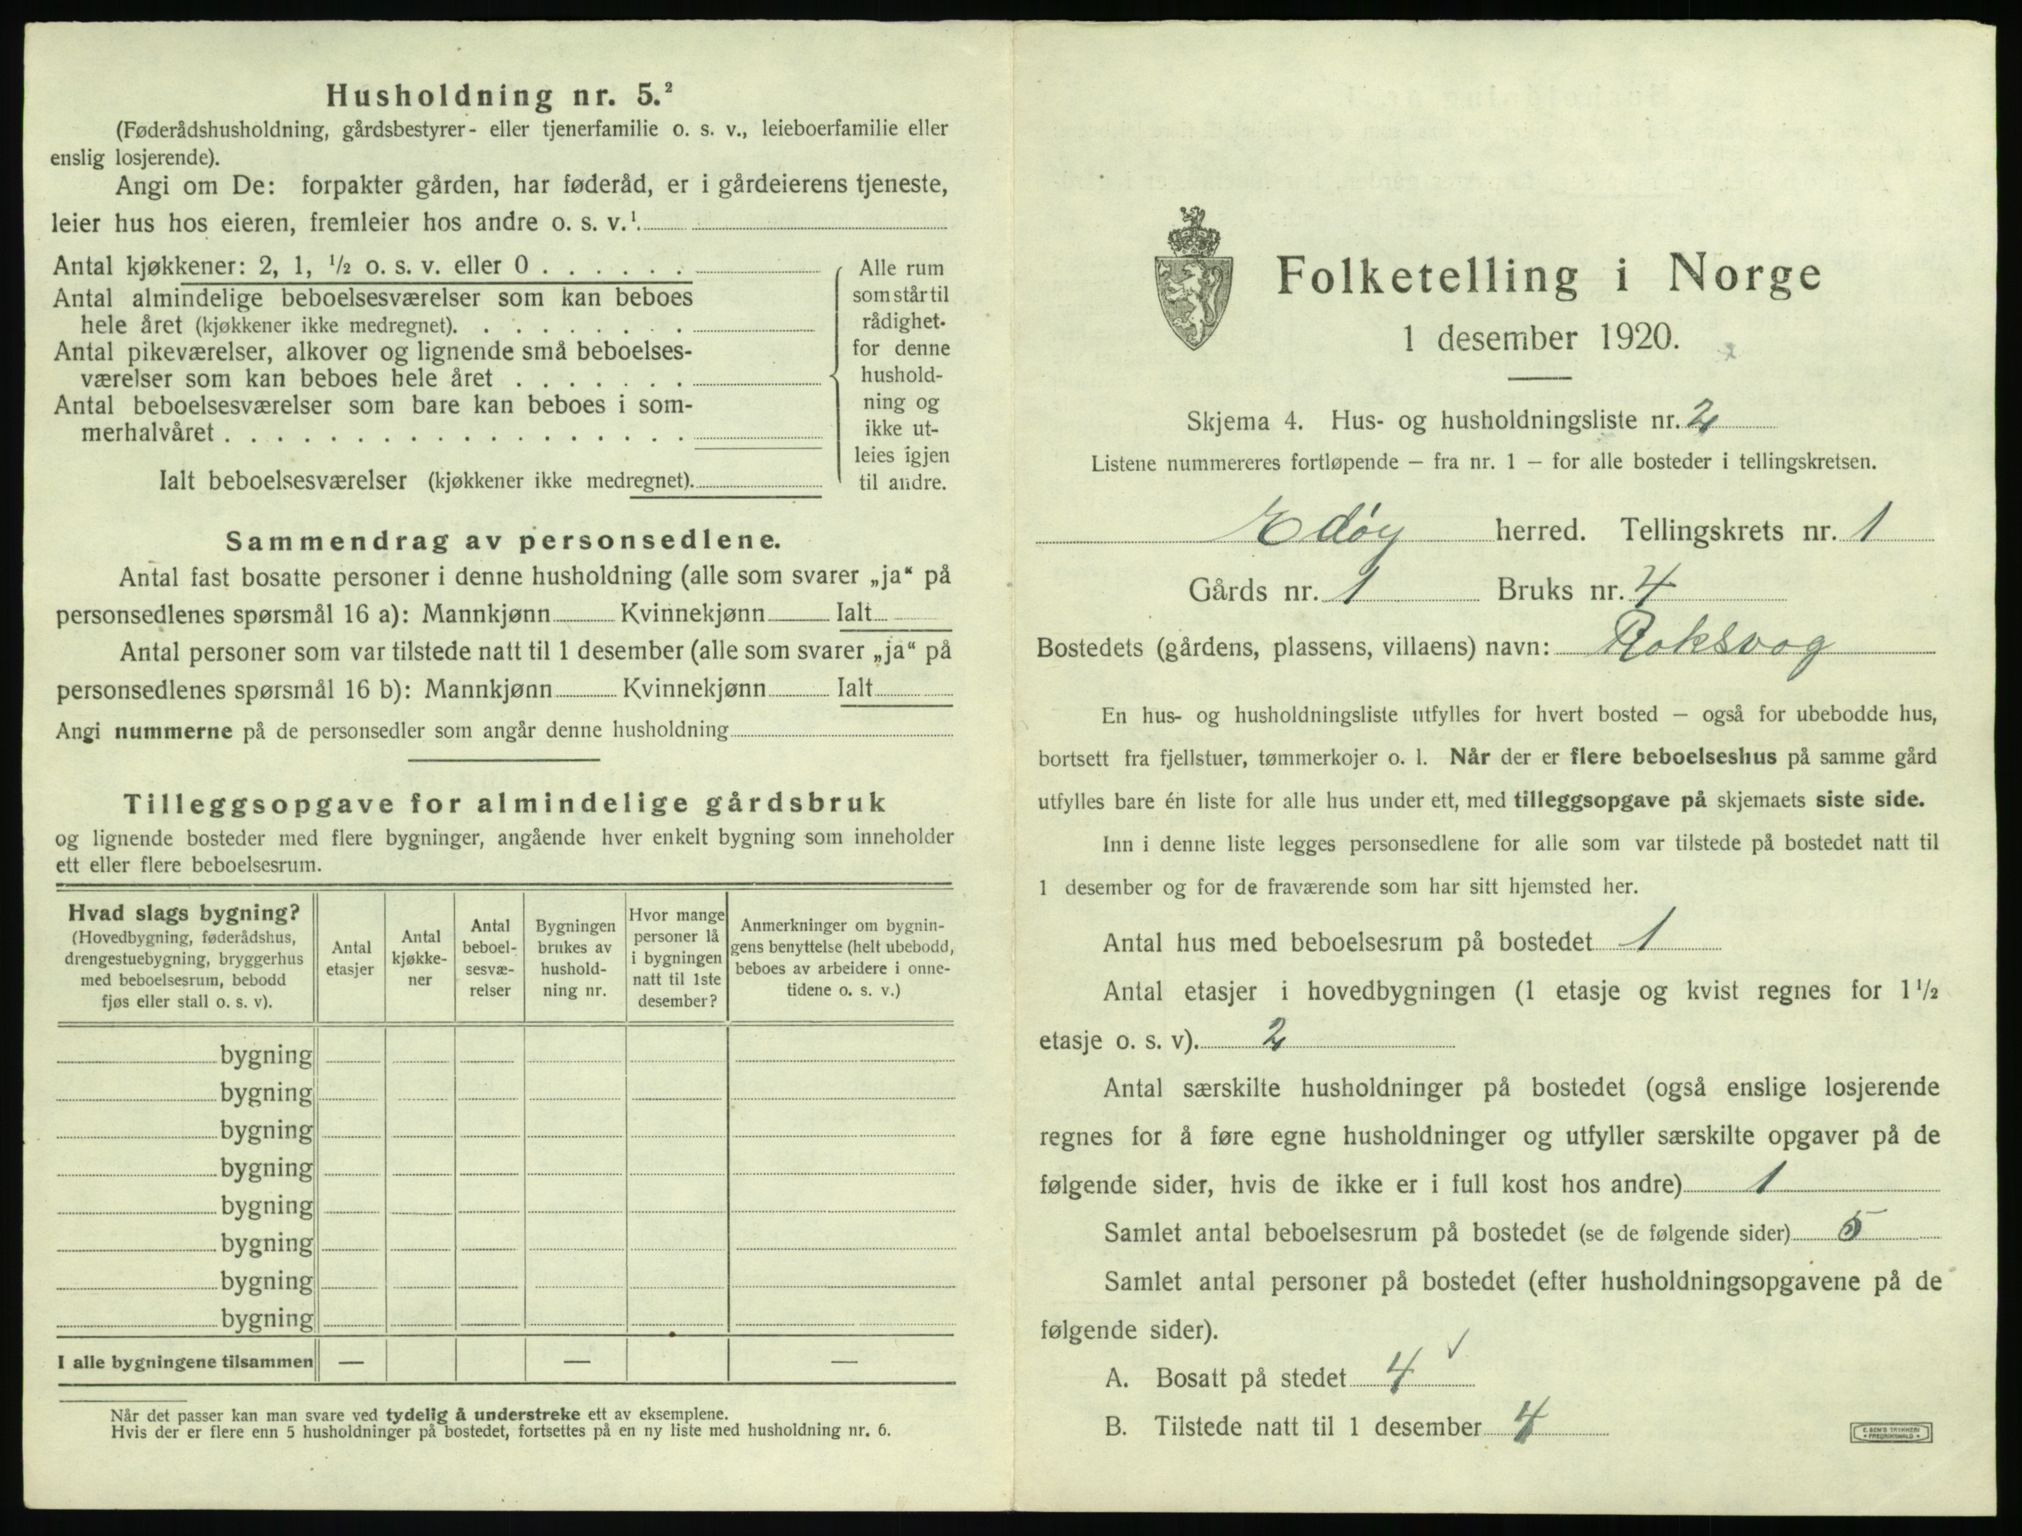 Husholdning nr. 5.²
(Føderådshusholdning, gårdsbestyrer- eller tjenerfamilie o. s. v., leieboerfamilie eller
enslig losjerende).
Angi om De: forpakter gården, har føderåd, er i gårdeierens tjeneste,
leier hus hos eieren, fremleier hos andre o. s. v.¹
Antal kjøkkener: 2, 1, ½ o. s. v. eller 0 . . . . . .
Antal almindelige beboelsesværelser som kan beboes
hele året (kjøkkener ikke medregnet). . . . . . . . .
Antal pikeværelser, alkover og lignende små beboelses-
værelser som kan beboes hele året . . . . . . .
Antal beboelsesværelser som bare kan beboes i som-
merhalvåret . . . . . . . . . . . . . . . . .
Ialt beboelsesværelser (kjøkkener ikke medregnet).
Alle rum
som står til
rådighet-
for denne
hushold-
ning og
ikke ut-
leies igjen
til andre.
Sammendrag av personsedlene.
Antal fast bosatte personer i denne husholdning (alle som svarer „ja“ på
personsedlenes spørsmål 16 a): Mannkjønn Kvinnekjønn Ialt
Antal personer som var tilstede natt til 1 desember (alle som svarer „ja“ på
personsedlenes spørsmål 16 b): Mannkjønn Kvinnekjønn Ialt
Angi nummerne på de personsedler som angår denne husholdning
Tilleggsopgave for almindelige gårdsbruk
og lignende bosteder med flere bygninger, angående hver enkelt bygning som inneholder
ett eller flere beboelsesrum.
Hvad slags bygning?
(Hovedbygning, føderådshus,
drengestuebygning, bryggerhus
med beboelsesrum, bebodd
fjøs eller stall o. s. v).
Antal
etasjer
Antal
kjøkke-
ner
Antal
beboel-
sesvæ-
relser
Bygningen
brukes av
hushold-
ning nr.
Hvor mange
personer lå
i bygningen
natt til 1ste
desember?
Anmerkninger om bygnin-
gens benyttelse (helt ubebodd,
beboes av arbeidere i onne-
tidene o. s. v.)
bygning
bygning
bygning
bygning
bygning
bygning
bygning
bygning
I alle bygningene tilsammen — — —
Når det passer kan man svare ved tydelig å understreke ett av eksemplene.
Hvis der er flere enn 5 husholdninger på bostedet, fortsettes på en ny liste med husholdning nr. 6.
Folketelling i Norge
1 desember 1920.
Skjema 4. Hus- og husholdningsliste nr. 2
Listene nummereres fortløpende – fra nr. 1 – for alle bosteder i tellingskretsen.
Edøy herred. Tellingskrets nr. 1
Gårds nr. 1 Bruks nr. 4
Bostedets (gårdens, plassens, villaens) navn: Roksvog
En hus- og husholdningsliste utfylles for hvert bosted – også for ubebodde hus,
bortsett fra fjellstuer, tømmerkojer o. l. Når der er flere beboelseshus på samme gård
utfylles bare én liste for alle hus under ett, med tilleggsopgave på skjemaets siste side.
Inn i denne liste legges personsedlene for alle som var tilstede på bostedet natt til
1 desember og for de fraværende som har sitt hjemsted her.
Antal hus med beboelsesrum på bostedet 1
Antal etasjer i hovedbygningen (1 etasje og kvist regnes for 1½
etasje o. s. v). 2
Antal særskilte husholdninger på bostedet (også enslige losjerende
regnes for å føre egne husholdninger og utfyller særskilte opgaver på de
følgende sider, hvis de ikke er i full kost hos andre) 1
Samlet antal beboelsesrum på bostedet (se de følgende sider) 5
Samlet antal personer på bostedet (efter husholdningsopgavene på de
følgende sider).
A. Bosatt på stedet 4 ✓
B. Tilstede natt til 1 desember 4